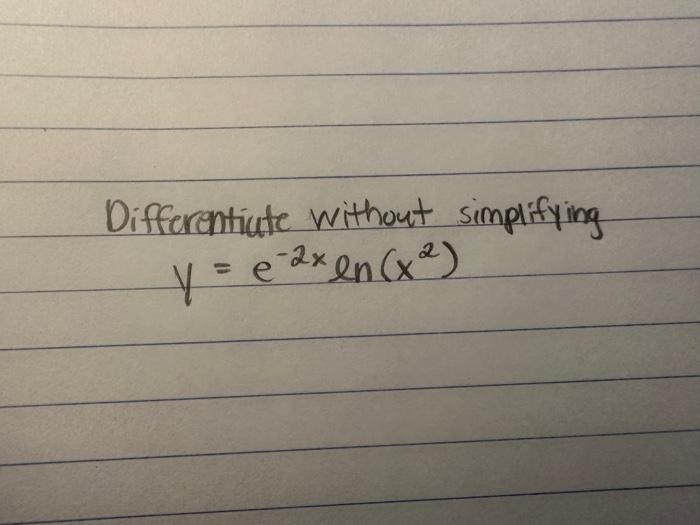 Differentiate without simplifying
y = e^{-2x} ln(x^2)